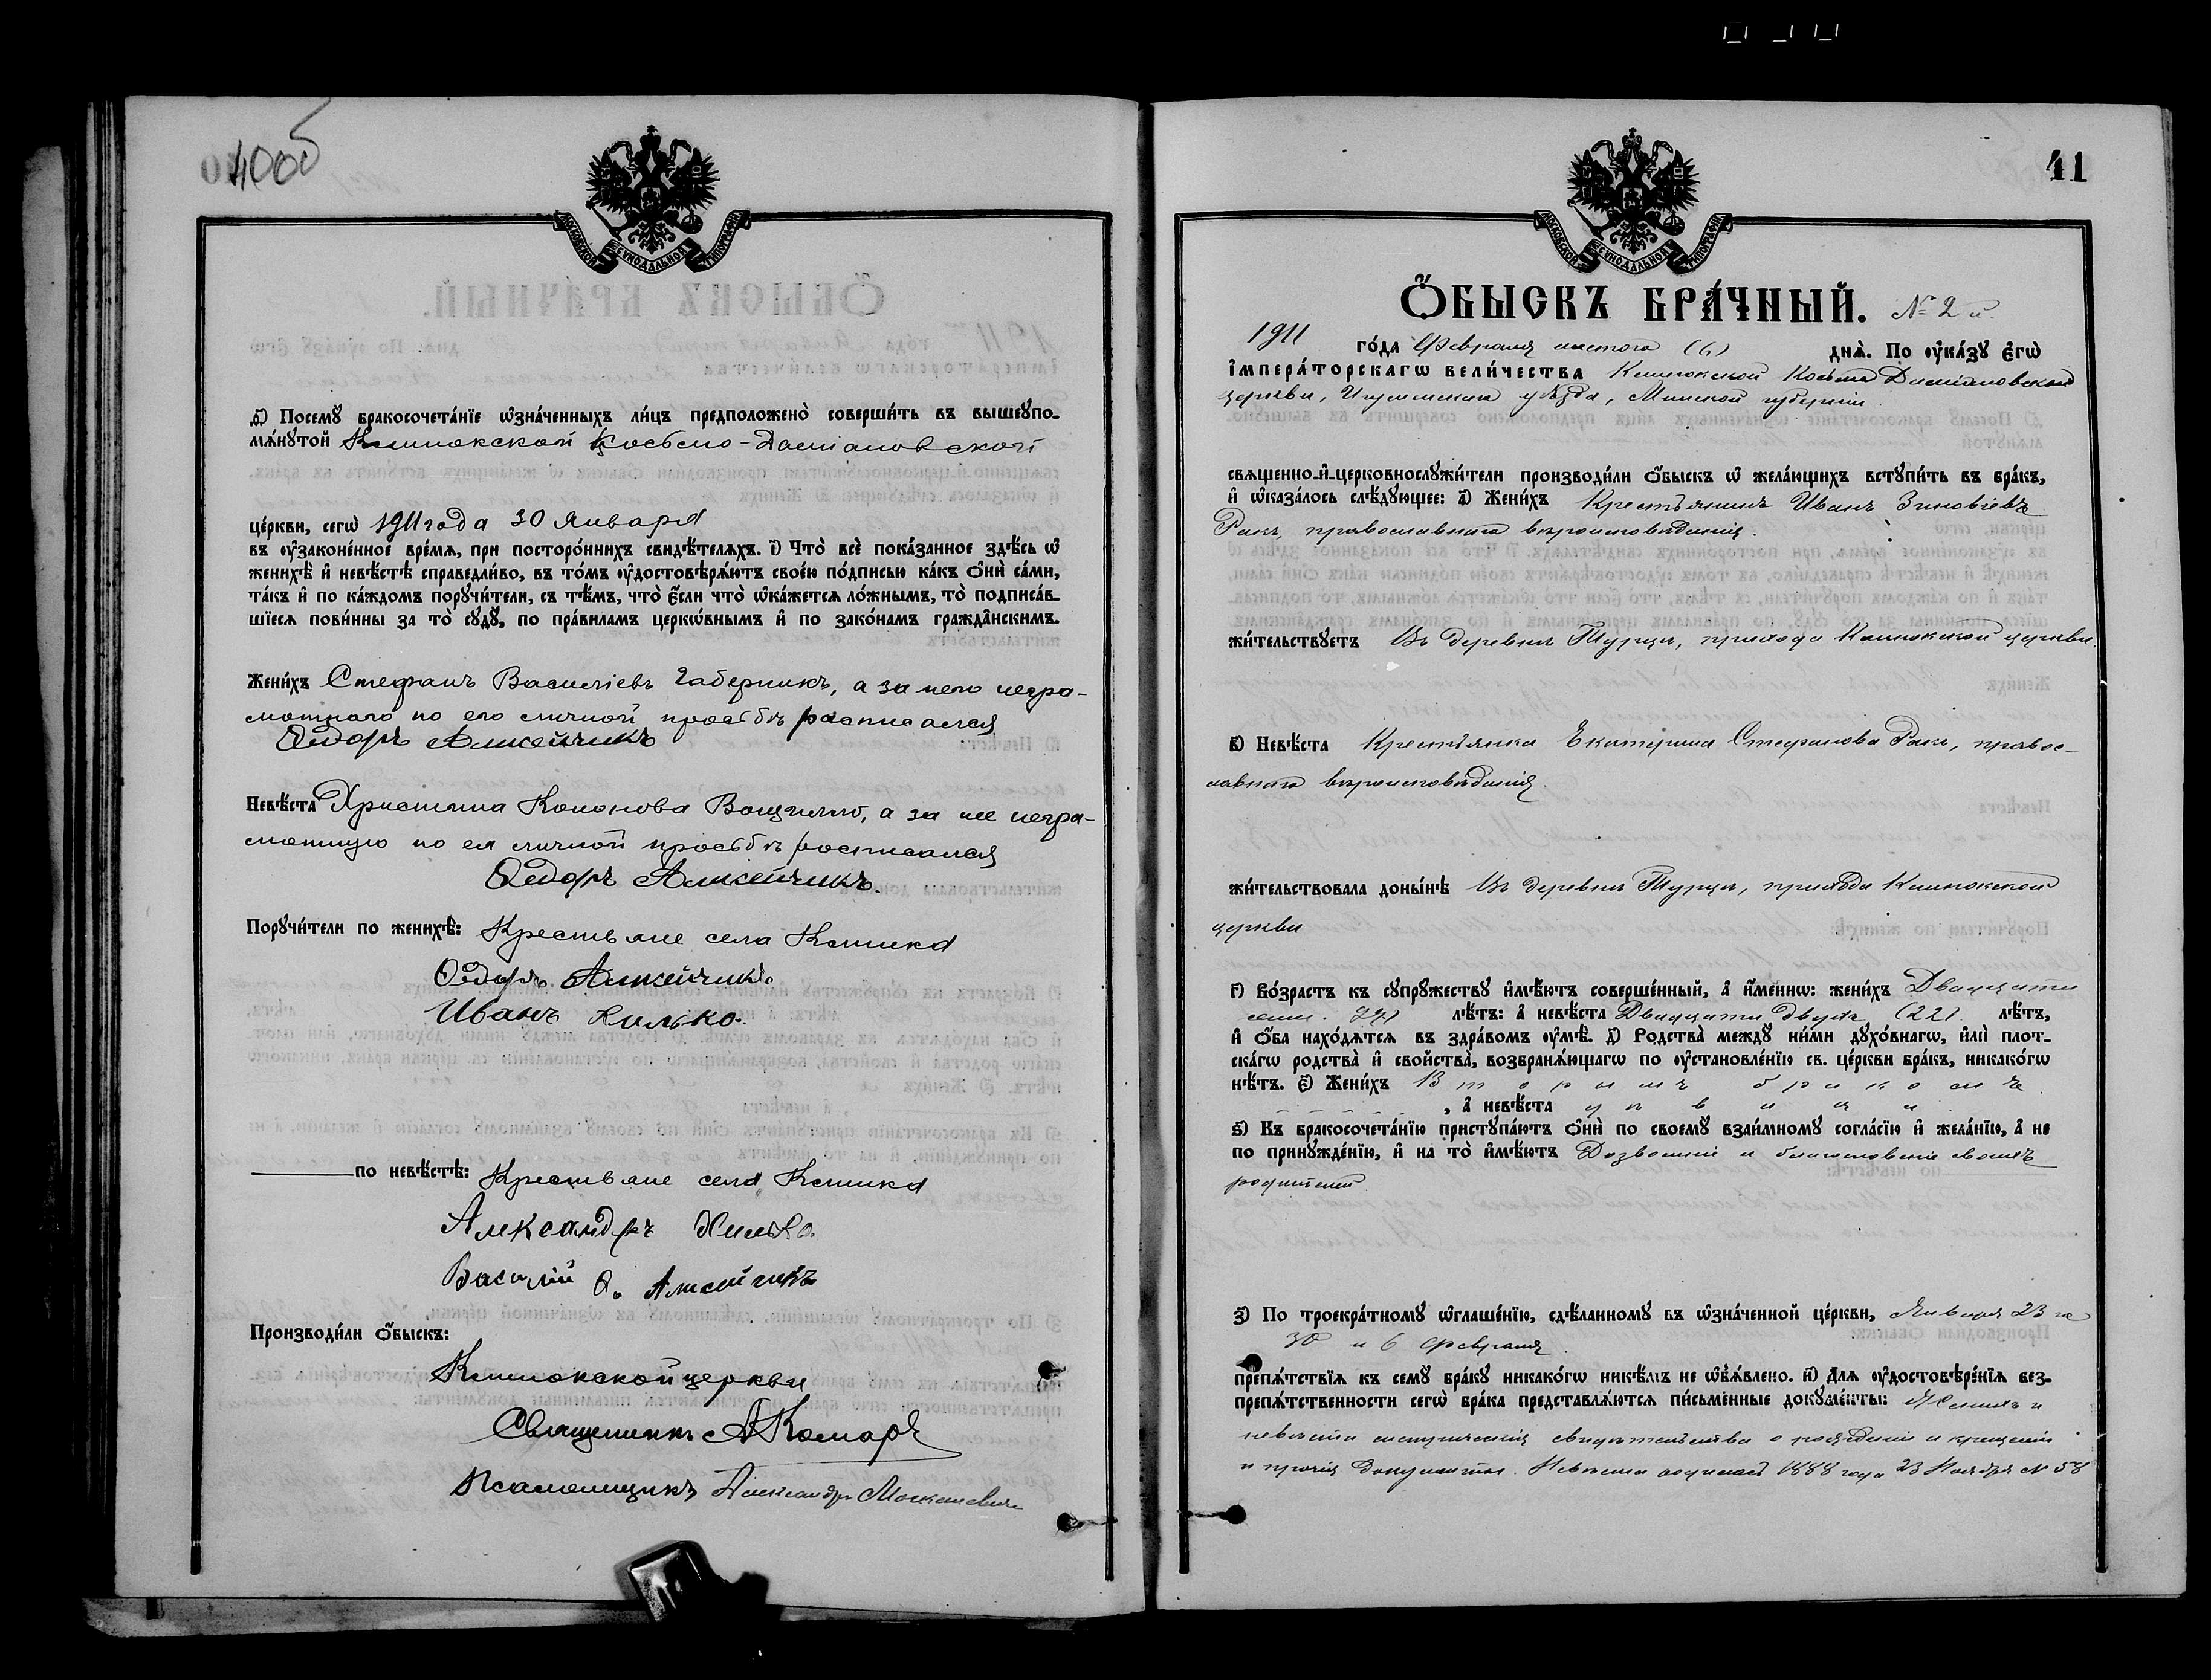 40об
МОСКОВСКОЙ СУНОДАЛЬНОЙ ТИПОГРАФІИ
д҃) Посемꙋ бракосочета́нїе ѡзна́ченныхъ ли́цъ предположено̀ соверши́ть въ вышеꙋпо-
мѧ́нꙋтой Клинокской Косьмо-Даміановской
це́ркви, сегѡ̀ 1911 года 30 Января
въ ᲂу҆законе́нное вре́мѧ, при посторо́ннихъ свидѣ́телѧхъ. і҃) Что̀ всѐ пока́занное здѣ́сь ѡ҆
женихѣ̀ и҆ невѣ́стѣ справедли́во, въ то́мъ ᲂу҆достовѣрѧ́ютъ свое́ю по́дписью ка́къ ѻ҆нѝ са́ми,
та́къ и҆ по ка́ждомъ порꙋчи́тели, съ тѣ́мъ, что̀ є҆́сли что̀ ѡ҆ка́жетсѧ ло́жнымъ, то̀ подписа́в-
шїесѧ пови́нны за то̀ сꙋдꙋ̀, по пра́виламъ церкѡ́внымъ и҆ по зако́намъ гражда̑нскимъ.
Жени́хъ Стефанъ Василіевъ Габерникъ, а за него негра-
мотнаго по его личной просьбѣ расписался
Ѳедоръ Алксейчикъ
Невѣ́ста Христина Кононова Вощилло, а за нее негра-
мотную по ея личной просьбѣ росписался
Ѳедоръ Алксейчикъ.
Порꙋчи́тели по женихѣ̀: Крестьяне села Клинка
Ѳедоръ Алксейчикъ.
Иванъ Хилько.
по невѣ́стѣ: Крестьяне села Клинка
Александръ Хилько.
Василій Ѳ. Алксейчикъ
Производи́ли ѻ҆́быскъ:
Клинокской церкви
Священникъ А Комаръ
Псаломщикъ Александръ
41
МОСКОВСКОЙ СУНОДАЛЬНОЙ ТИПОГРАФІИ
Ѻ҆́БЫСКЪ БРА́ЧНЫЙ. № 2 й.
1911 го́да Февраля шестого (6) днѧ̀. По ᲂу҆ка́зꙋ є҆гѡ̀
і҆мпера́торскагѡ вели́чества Клинокской Косьмо Даміановской
церкви, Игуменскаго уѣзда, Минской губерніи.
свѧщенно-и҆-церковнослꙋжи́тели производи́ли ѻ҆́быскъ ѡ҆ жела́ющихъ встꙋпи́ть въ бра́къ,
и҆ ѡ҆каза́лось слѣ́дꙋющее: а҃) Жени́хъ Крестьянинъ Иванъ Зиновіевъ
Ракъ, православнаго вѣроисповѣданія.
жи́тельствꙋетъ Въ деревнѣ Турцѣ, прихода Клинокской церкви.
в҃) Невѣ́ста Крестьянка Екатерина Стефанова Ракъ, правос-
лавнаго вѣроисповѣданія.
жи́тельствовала доны́нѣ Въ деревнѣ Турцѣ, прихода Клинокской
церкви
г҃) Во́зрастъ къ сꙋпрꙋ́жествꙋ и҆мѣ́ютъ соверше́нный, а҆ и҆́менно: жени́хъ Двадцати
семи (27) лѣ́тъ: а҆ невѣ́ста Двадцати двухъ (22) лѣ́тъ,
и҆ ѻ҆́ба нахо́дѧтсѧ въ здра́вомъ ᲂу҆мѣ̀. д҃) Родства̀ междꙋ̀ ни́ми дꙋхо́внагѡ, и҆лѝ плот-
ска́гѡ родства̀ и҆ свойства̀, возбранѧ́ющагѡ по ᲂу҆становле́нїю св. це́ркви бра́къ, никако́гѡ
нѣ́тъ. є҃) Жени́хъ Вторымъ бракомъ
, а҆ невѣ́ста дѣвица
ѕ҃) Къ бракосочета́нїю пристꙋпа́ютъ ѻ҆нѝ по своемꙋ̀ взаи́мномꙋ согла́сїю и҆ жела́нїю, а҆ не
по принꙋжде́нїю, и҆ на то̀ и҆мѣ́ютъ Дозволеніе и благословеніе своихъ
родителей.
з҃) По троекра́тномꙋ ѡ҆глаше́нїю, сдѣ́ланномꙋ въ ѡ҆зна́ченной це́ркви, Января 23 го
30 и 6 февраля.
препѧ́тствїѧ къ семꙋ̀ бра́кꙋ никако́гѡ никѣ́мъ не ѡ҆б̾ѧ́влено. и҃) Длѧ ᲂу҆достовѣре́нїѧ без-
препѧ́тственности сегѡ̀ бра́ка представлѧ́ютсѧ пи́сьменные докꙋме́нты: Жениха и
невѣсты метрическія свидѣтельства о рожденіи и крещеніи
и прочія документы. Невѣста родилась 1888 года 23 Ноября № 58